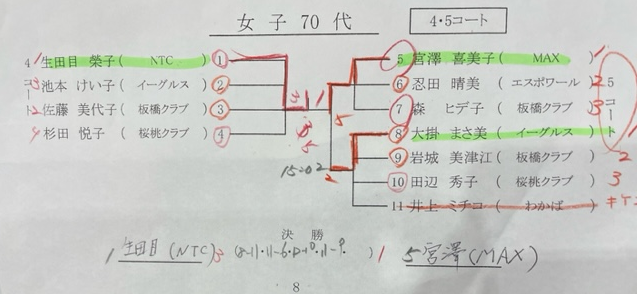 女子70代
4・5コート
4 1 生田目 榮子 ( NTC ) 1
3 池本 けい子 ( イーグルス ) 2
2 佐藤 美代子 ( 板橋クラブ ) 3
4 杉田 悦子 ( 桜桃クラブ ) 4
コート
5 宮澤 喜美子 ( MAX ) 1
6 忍田 晴美 ( エスポワール ) 2
7 森 ヒデ子 ( 板橋クラブ ) 3
8 大掛 まさ美 ( イーグルス )
9 岩城 美津江 ( 板橋クラブ ) 2
10 田辺 秀子 ( 桜桃クラブ ) 3
11 井上 ミチコ ( わかば ) キケン
5コート
3 1
5
2
決勝
1 生田目 (NTC) 3 ( ) 1 5 宮澤 (MAX)
8